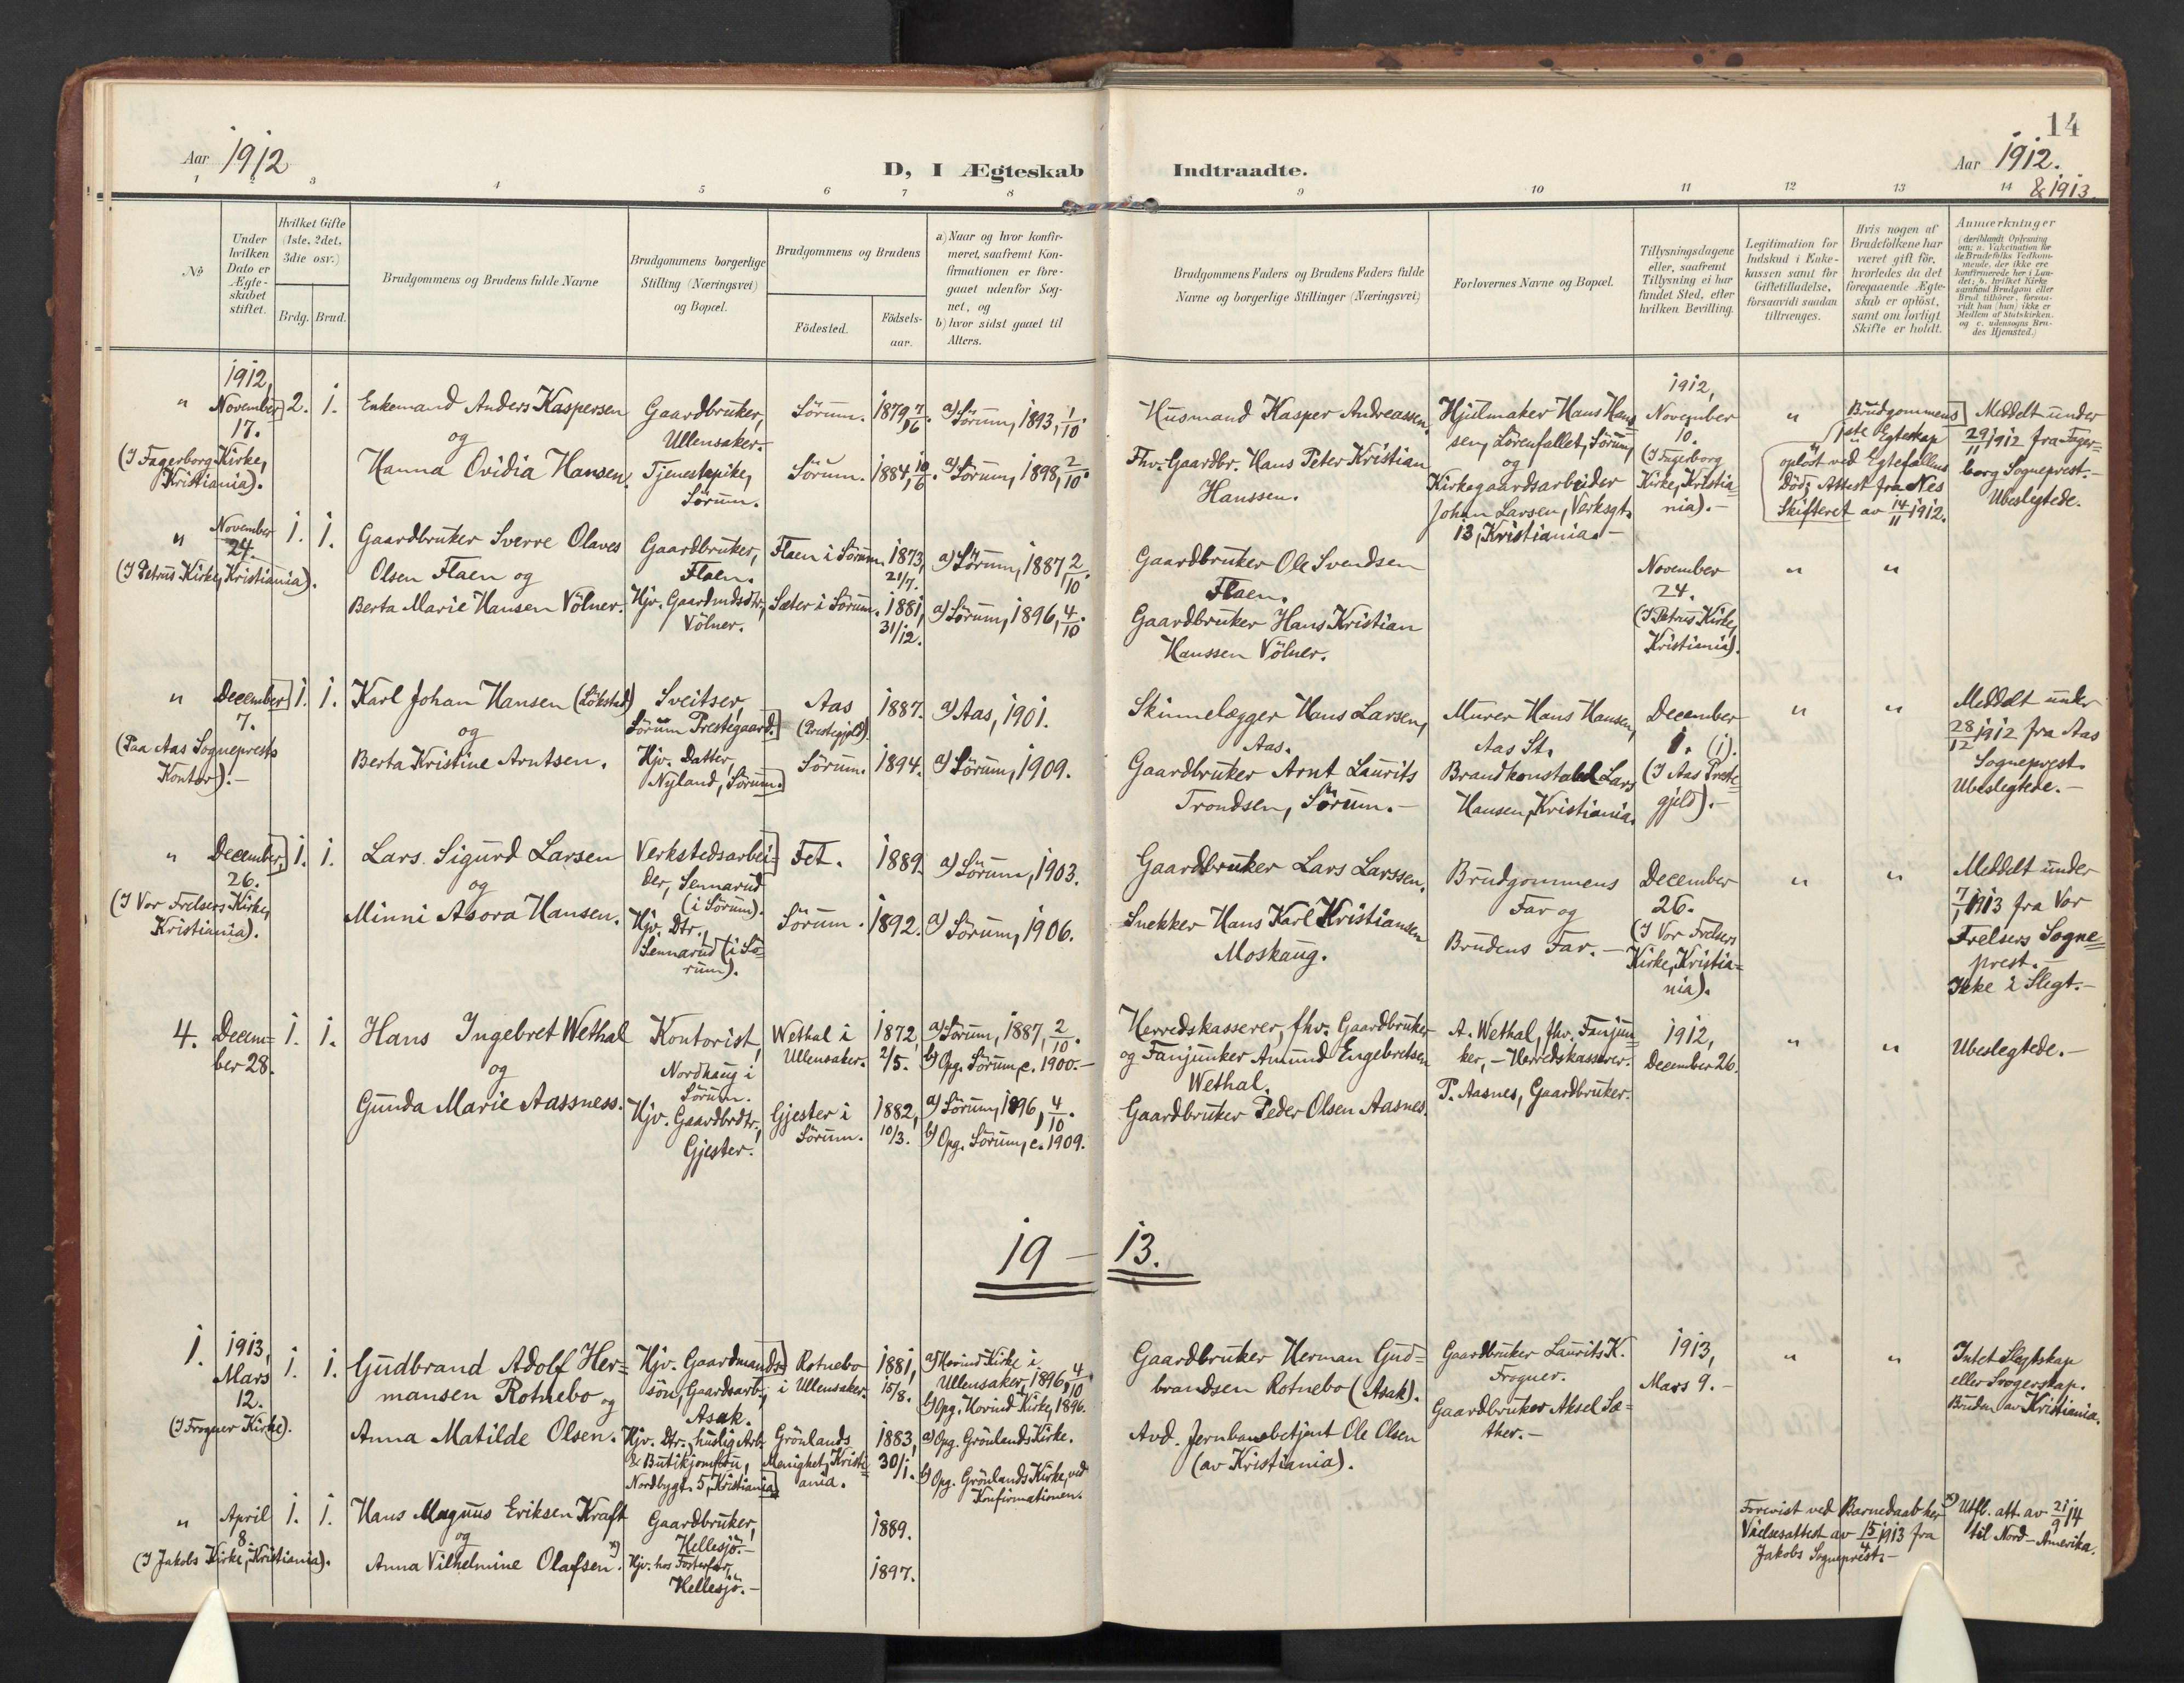 14
Aar 1912
D, I Ægteskab Indtraadte.
Aar 1912.
& 1913.
1 2 3 4 5 6 7 8 9 10 11 12 13 14
No
Under hvilken Dato er Ægteskabet stiftet.
Hvilket Gifte (1ste, 2det, 3die osv.)
Brdg. Brud.
Brudgommens og Brudens fulde Navne
Brudgommens borgerlige Stilling (Næringsvei) og Bopæl.
Brudgommens og Brudens
Fødested.
Fødselsaar.
a) Naar og hvor konfirmeret, saafremt Konfirmationen er foregaaet udenfor Sognet, og
b) hvor sidst gaaet til Alters.
Brudgommens Faders og Brudens Faders fulde Navne og borgerlige Stillinger (Næringsvei)
Forlovernes Navne og Bopæl.
Tillysningsdagene eller, saafremt Tillysning ei har fundet Sted, efter hvilken Bevilling.
Legitimation for Indskud i Enkekassen samt for Giftetilladelse, forsaavidt saadan tiltrænges.
Hvis nogen af Brudefolkene har været gift før, hvorledes da det foregaaende Ægteskab er opløst, samt om lovligt Skifte er holdt.
Anmærkninger
(deriblandt Oplysning om: a. Vakcination for de Brudefolks Vedkommende, der ikke ere konfirmerede her i Landet; b. hvilket Kirkesamfund Brudgom eller Brud tilhører, forsaavidt han (hun) ikke er Medlem af Statskirken, og c. udensogns Brudes Hjemsted.)
1912,
" November 17.
(I Fagerborg Kirke, Kristiania).
2. 1.
Enkemand Anders Kaspersen
og
Hanna Ovidia Hansen.
Gaardbruker, Ullensaker.
Tjenestepike, Sörum.
Sörum. 1879, 7/16.
Sörum. 1884, 10/6.
a) Sörum, 1893, 1/10.
a) Sörum, 1898, 2/10.
Husmand Kasper Andreassen.
Fhv. Gaardbr. Hans Peter Kristian
Hanssen.
Hjulmaker Hans Hans
sen, Sörenfallet, Sörum,
og
Kirkegaardsarbeider
Johan Larsen, Verksgt.
13, Kristiania.-
1912,
November
10.
(I Fagerborg
Kirke, Kristia=
nia).-
"
Brudgommens
1ste Egteskap
oplöst ved Egtefællens
Död; Attest fra Nes
Skifteret av 14/11 1912.
Meddelt under
29/11 1912 fra Fager=
borg Sogneprest.-
Ubeslegtede.
" November
24.
(I Petrus Kirke, Kristiania).
1. 1.
Gaardbruker Sverre Olaves
Olsen Flaen og
Berta Marie Hansen Völner.
Gaardbruker,
Flaen.
Hjv. Gaardmdsdtr,
Völner.
Flaen i Sörum, 1873, 21/7.
Sæter i Sörum. 1881, 31/12.
a) Sörum, 1887 2/10.
a) Sörum, 1896, 4/10.
Gaardbruker Ole Svendsen
Flaen.
Gaardbruker Hans Kristian
Hanssen Völner.
November
24.
(I Petrus Kirke,
Kristiania).
" "
" December
7.
(Paa Aas Sogneprests
Kontor).-
1. 1.
Karl Johan Hansen (Lökstad)
og
Berta Kristine Arntsen.
Sveitser,
Sörum Prestegaard.
Hjv. Datter,
Nyland, Sörum.
Aas
(Prestegjeld)
1887.
Sörum. 1894.
a) Aas, 1901.
a) Sörum, 1909.
Skinnelægger Hans Larsen,
Aas.
Gaardbruker Arnt Laurits
Trondsen, Sörum.-
Murer Hans Hansen,
Aas St.
Brandkonstabel Lars
Hansen, Kristiania.
December
1. (1).
(I Aas Preste=
gjeld).-
" "
Meddelt under
28/12 1912 fra Aas
Sogneprest.
Ubeslegtede.-
" December,
26.
(I Vor Frelsers Kirke,
Kristiania).
1. 1.
Lars Sigurd Larsen
og
Minni Asora Hansen.
Verkstedsarbei=
der, Sennarud
(i Sörum).
Hjv. Dtr.,
Sennarud (i Sö=
rum).
Fet. 1889.
Sörum. 1892.
a) Sörum, 1903.
a) Sörum, 1906.
Gaardbruker Lars Larssen.
Snekker Hans Karl Kristiansen
Moskaug.
Brudgommens
Far og
Brudens Far.-
December
26.
(I Vor Frelsers
Kirke, Kristia=
nia).
" "
Meddelt under
7/1 1913 fra Vor
Frelsers Sogne=
prest.-
Ikke i Slegt.-
4. Decem=
ber 28.
1. 1.
Hans Ingebret Wethal
og
Gunda Marie Aassness.
Kontorist,
Nordhaug i
Sörum.
Hjv. Gaardbrdtr.,
Gjester.
Wethal i
Ullensaker.
1872, 2/5.
Gjester i
Sörum.
1882, 10/3.
a) Sörum, 1887, 2/10.
b) Opg. Sörum, c. 1900.-
a) Sörum, 1896, 4/10.
b) Opg. Sörum, c. 1909.
Herredskasserer, fhv. Gaardbruker
og Fanjunker Amund Engebretsen
Wethal.
Gaardbruker Peder Olsen Aasnes.
A. Wethal, fhv. Fanjun=
ker, - Herredskasserer.
P. Aasnes, Gaardbruker.
1912,
December 26.
" "
Ubeslegtede.-
19 - 13.
1. 1913,
Mars
12.
(I Frogner Kirke).
1. 1.
Gudbrand Adolf Her=
mansen Rotnebo og
Anna Matilde Olsen.
Hjv. Gaardmands=
sön, Gaardsarb.,
Asak.
Hjv. Dtr., huslig Arb.
& Butikjomfru,
Nordbygt. 5, Kristiania
Rotnebo
i Ullensaker.
1881, 15/8.
Grönlands
Menighet, Kristi=
ania.
1883, 30/1.
a) Hovind Kirke i
Ullensaker, 1896, 4/10
b) Opg. Hovind Kirke, 1896.
a) Opg. Grönlands Kirke.
b) Opg. Grönlands Kirke, ved
Konfirmationen.
Gaardbruker Herman Gud=
brandsen Rotnebo (Asak).
Avd. Jernbanebetjent Ole Olsen
(av Kristiania).
Gaardbruker Laurits K.
Frogner.
Gaardbruker Aksel Sæ=
ther.-
1913,
Mars 9.-
" "
Intet Slegtskap
eller Svogerskap.
Bruden av Kristiania.
" April
8.
(I Jakobs Kirke, Kristiania).
1. 1.
Hans Magnus Eriksen Kraft
og
Anna Vilhelmine Olafsen. x)
Gaardbruker,
Hellesjö.-
Hjv. hos Fosterfar,
Hellesjö.-
1889.
1897.
Forevist ved Barnedaab her
Vielsesattest av 15/4 1913 fra
Jakobs Sogneprest.-
x) Utfl. att. av 21/9 14
til Nord-Amerika.